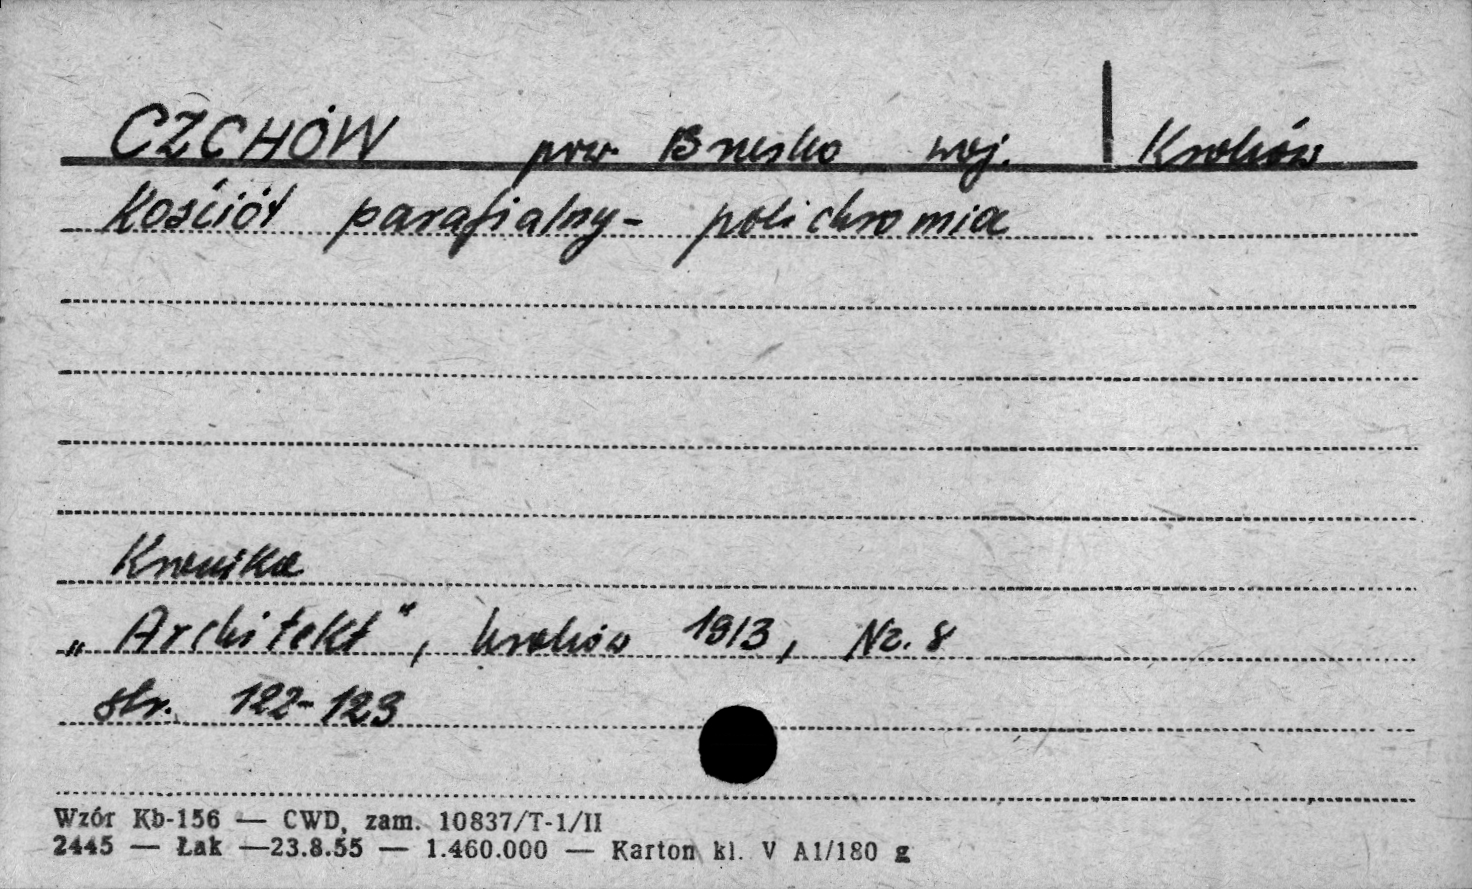 CZCHÓW pow. Brzesko, woj. Kraków
Kościół parafialny - polichromia
Kronika
„Architekt", Kraków 1913, Nr. 8
str. 122-123
Wzór Kb-156 — CWD, zam. 10837/T-1/II
2445 — Łak —23.8.55 — 1.460.000 — Karton kl. V A1/180 g